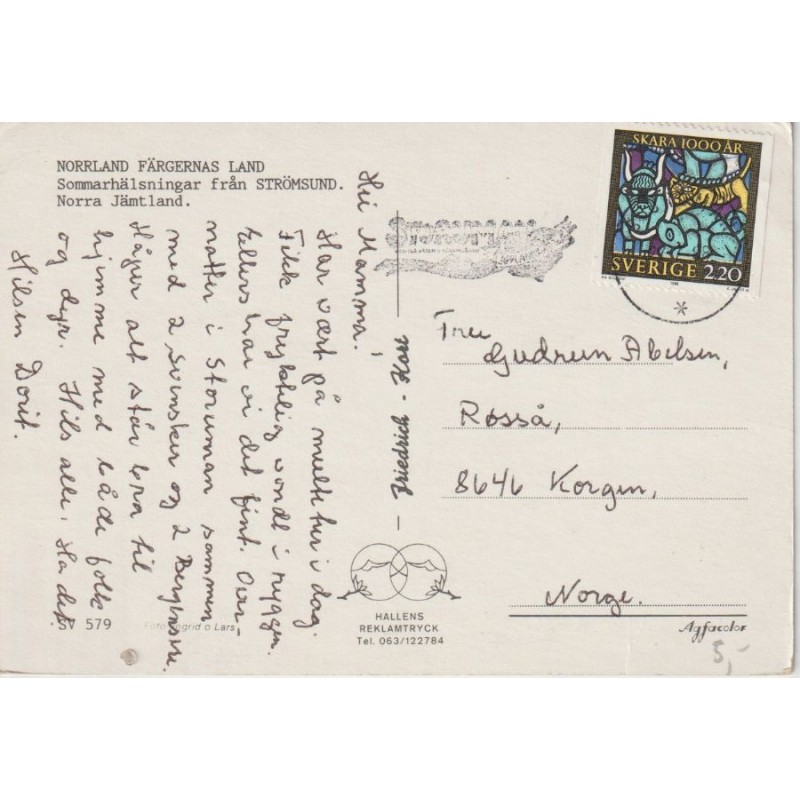 NORRLAND FÄRGERNAS LAND
Sommarhälsningar från STRÖMSUND.
Norra Jämtland.
Hei Mamma!
Har vært på multetur i dag.
Fikk fryktelig vondt i ryggen.
Ellers har vi det fint. Over-
natter i Storuman sammen
med 2 svensker og 2
Håper alt står bra til
hjemme med både folk
og dyr. Hils alle. Ha det.
Hilsen Dorit.
SV 579
Foto Ingrid o Lars
HALLENS
REKLAMTRYCK
Tel. 063/122784
SKARA 1000 ÅR
SVERIGE 2.20
STORUMAN
Fru
Gudrun Abelsen,
Røsså,
8646 Korgen,
Norge.
Agfacolor
5,-